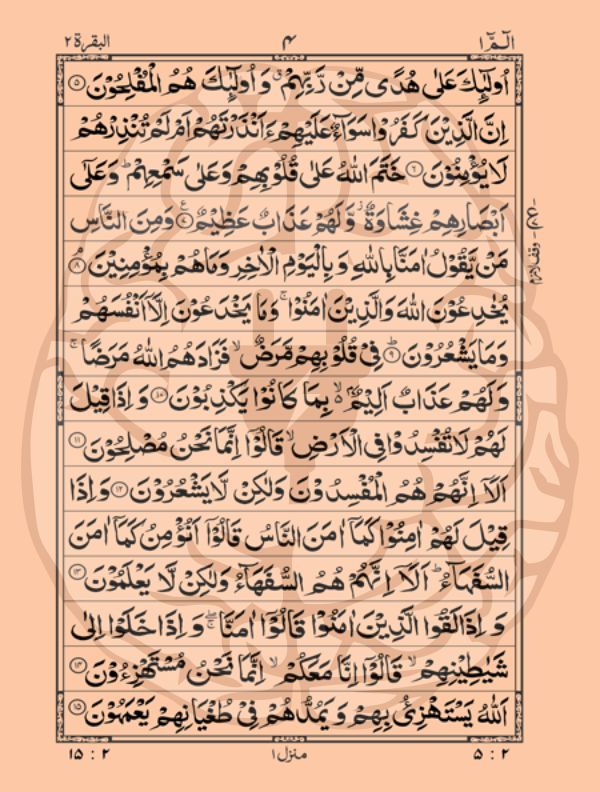 الٓـمّٓ ۱ ۴ البقرة ۲
اُولٰٓئِكَ عَلٰى هُدًى مِّنْ رَّبِّهِمْ ۗ وَ اُولٰٓئِكَ هُمُ الْمُفْلِحُوْنَ ﴿۵﴾
اِنَّ الَّذِيْنَ كَفَرُوْا سَوَآءٌ عَلَيْهِمْ ءَاَنْذَرْتَهُمْ اَمْ لَمْ تُنْذِرْهُمْ
لَا يُؤْمِنُوْنَ ﴿۶﴾ خَتَمَ اللّٰهُ عَلٰى قُلُوْبِهِمْ وَعَلٰى سَمْعِهِمْ ؕ وَعَلٰٓى
اَبْصَارِهِمْ غِشَاوَةٌ ۫ وَّلَهُمْ عَذَابٌ عَظِيْمٌ ﴿۷﴾ وَمِنَ النَّاسِ
مَنْ يَّقُوْلُ اٰمَنَّا بِاللّٰهِ وَ بِالْيَوْمِ الْاٰخِرِ وَمَا هُمْ بِمُؤْمِنِيْنَ ﴿۸﴾
يُخٰدِعُوْنَ اللّٰهَ وَالَّذِيْنَ اٰمَنُوْا ۚ وَمَا يَخْدَعُوْنَ اِلَّاۤ اَنْفُسَهُمْ
وَمَا يَشْعُرُوْنَ ﴿۹﴾ فِيْ قُلُوْبِهِمْ مَّرَضٌ ۙ فَزَادَهُمُ اللّٰهُ مَرَضًا ۚ
وَلَهُمْ عَذَابٌ اَلِيْمٌۢ ۙ بِمَا كَانُوْا يَكْذِبُوْنَ ﴿۱۰﴾ وَ اِذَا قِيْلَ
لَهُمْ لَا تُفْسِدُوْا فِي الْاَرْضِ ۙ قَالُوْۤا اِنَّمَا نَحْنُ مُصْلِحُوْنَ ﴿۱۱﴾
اَلَاۤ اِنَّهُمْ هُمُ الْمُفْسِدُوْنَ وَلٰكِنْ لَّا يَشْعُرُوْنَ ﴿۱۲﴾ وَ اِذَا
قِيْلَ لَهُمْ اٰمِنُوْا كَمَاۤ اٰمَنَ النَّاسُ قَالُوْۤا اَنُؤْمِنُ كَمَاۤ اٰمَنَ
السُّفَهَآءُ ؕ اَلَاۤ اِنَّهُمْ هُمُ السُّفَهَآءُ وَلٰكِنْ لَّا يَعْلَمُوْنَ ﴿۱۳﴾
وَ اِذَا لَقُوا الَّذِيْنَ اٰمَنُوْا قَالُوْۤا اٰمَنَّا ۖۚ وَ اِذَا خَلَوْا اِلٰى
شَيٰطِيْنِهِمْ ۙ قَالُوْۤا اِنَّا مَعَكُمْ ۙ اِنَّمَا نَحْنُ مُسْتَهْزِءُوْنَ ﴿۱۴﴾
اَللّٰهُ يَسْتَهْزِئُ بِهِمْ وَ يَمُدُّهُمْ فِيْ طُغْيَانِهِمْ يَعْمَهُوْنَ ﴿۱۵﴾
۲ : ۵ منزل ۱ ۲ : ۱۵
وقف لازم